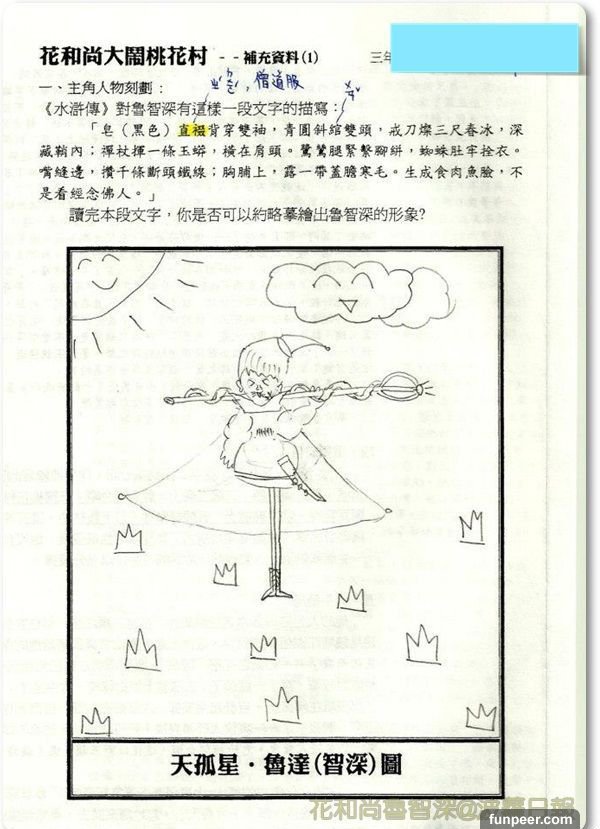 花和尚大鬧桃花村 - - 補充資料(1)
三年
ㄉㄨㄛˊ, 僧道服
一、主角人物刻劃：
《水滸傳》對魯智深有這樣一段文字的描寫：
「皂（黑色）直裰背穿雙袖，青圓斜綰雙頭，戒刀燦三尺春冰，深
藏鞘內；禪杖揮一條玉蟒，橫在肩頭。鷺鷥腿緊繫腳絣，蜘蛛肚牢拴衣。
嘴縫邊，攢千條斷頭鐵線；胸脯上，露一帶蓋膽寒毛。生成食肉魚臉，不
是看經念佛人。」
讀完本段文字，你是否可以約略摹繪出魯智深的形象?
天孤星・魯達(智深)圖
花和尚魯智深@波蘭日報
funpeer.com